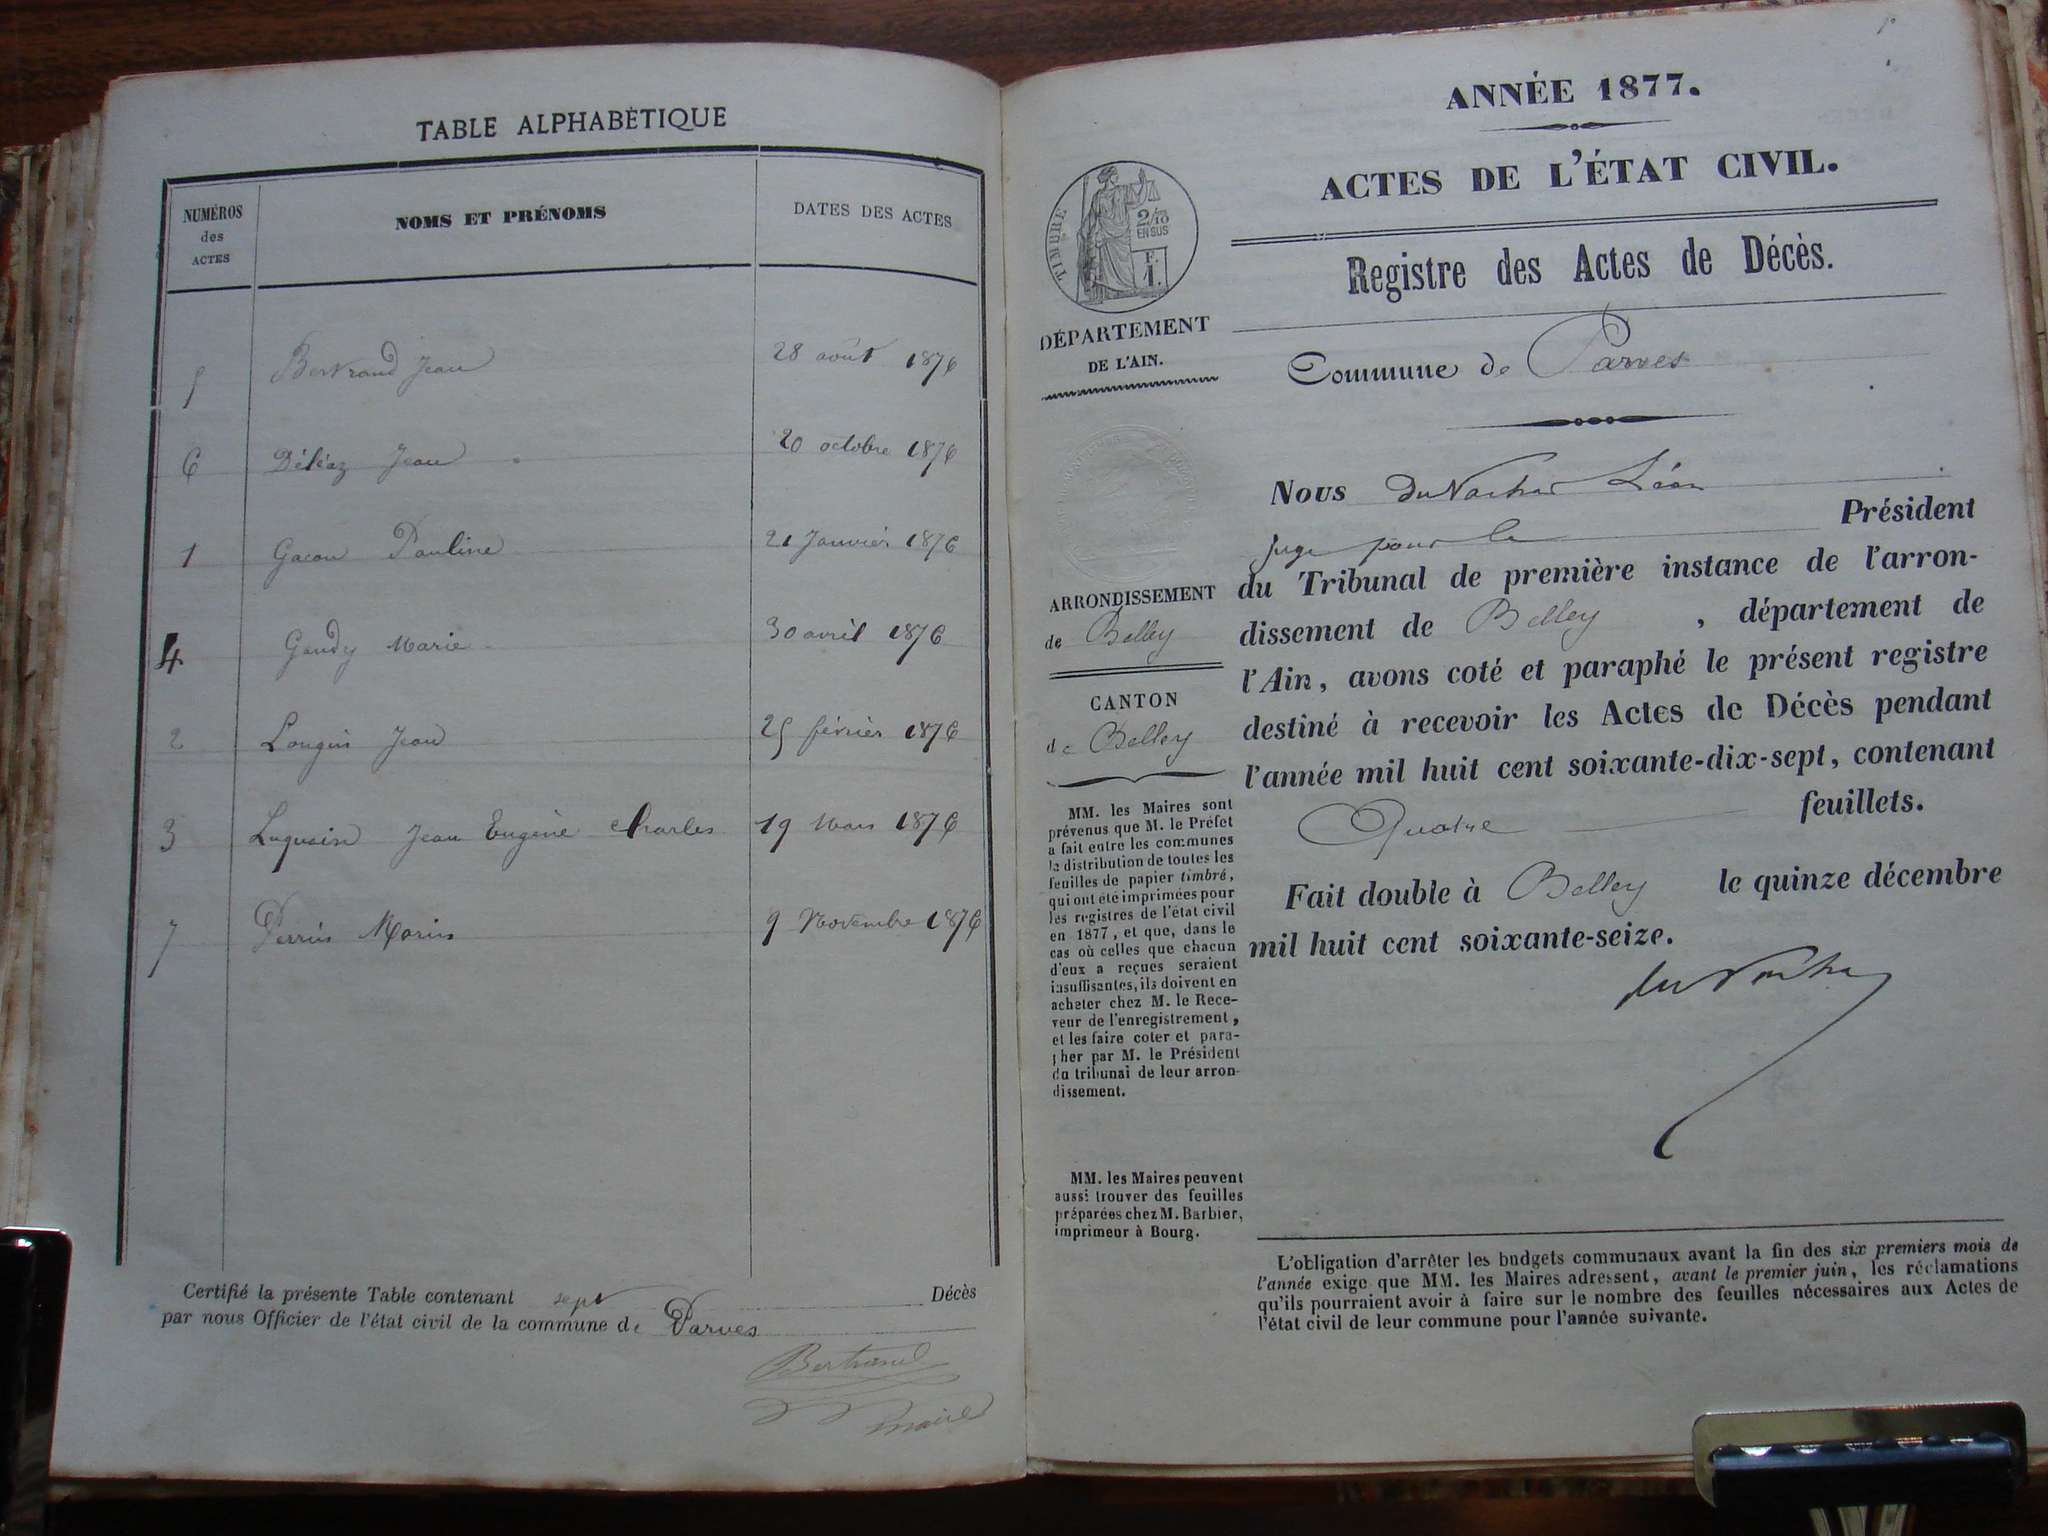 TABLE ALPHABÉTIQUE
NUMÉROS des ACTES NOMS ET PRÉNOMS DATES DES ACTES
5 Bertrand Jean 28 août 1876
6 Déléaz Jean 20 octobre 1876
1 Gacon Pauline 21 Janvier 1876
4 Gaudy Marie 30 avril 1876
2 Longin Jean 25 février 1876
3 Luquain Jean Eugène Charles 19 Mars 1876
7 Perrin 9 Novembre 1876
Certifié la présente Table contenant sept Décès
par nous Officier de l'état civil de la commune de Parves
Bertrand
maire
ANNÉE 1877.
ACTES DE L'ÉTAT CIVIL.
Registre des Actes de Décès.
Commune de Parves
TIMBRE
2/10
EN SUS
F.
1.
DÉPARTEMENT
DE L'AIN.
ARRONDISSEMENT
de Belley
CANTON
de Belley
MM. les Maires sont
prévenus que M. le Préfet
a fait entre les communes
la distribution de toutes les
feuilles de papier timbré,
qui ont été imprimées pour
les registres de l'état civil
en 1877, et que, dans le
cas où celles que chacun
d'eux a reçues seraient
insuffisantes, ils doivent en
acheter chez M. le Rece-
veur de l'enregistrement,
et les faire coter et para-
pher par M. le Président
du tribunal de leur arron-
dissement.
MM. les Maires peuvent
aussi trouver des feuilles
préparées chez M. Barbier,
imprimeur à Bourg.
Nous Léon
juge pour le Président
du Tribunal de première instance de l'arron-
dissement de Belley, département de
l'Ain, avons coté et paraphé le présent registre
destiné à recevoir les Actes de Décès pendant
l'année mil huit cent soixante-dix-sept, contenant
Quatre feuillets.
Fait double à Belley le quinze décembre
mil huit cent soixante-seize.
L'obligation d'arrêter les budgets communaux avant la fin des six premiers mois de
l'année exige que MM. les Maires adressent, avant le premier juin, les réclamations
qu'ils pourraient avoir à faire sur le nombre des feuilles nécessaires aux Actes de
l'état civil de leur commune pour l'année suivante.